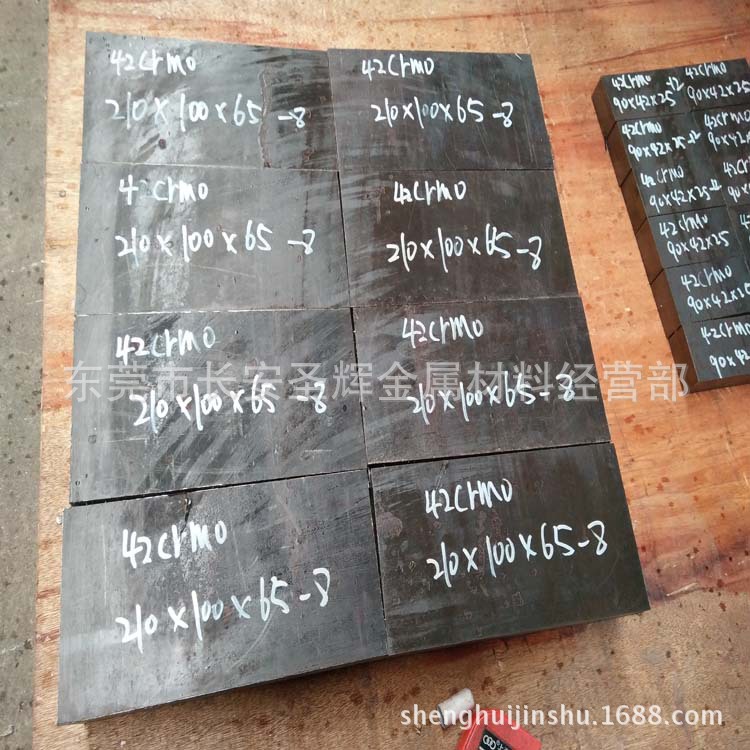 42CrMo
210×100×65-8
42CrMo
210×100×65-8
42CrMo
210×100×65-8
42CrMo
210×100×65-8
42CrMo
210×100×65-8
42CrMo
210×100×65-8
42CrMo
210×100×65-8
42CrMo
210×100×65-8
42CrMo
90×42×25-12
42CrMo
90×42×25
42CrMo
90×42×25-12
42CrMo
90×42
42CrMo
90×42×25-12
42C
90
42CrMo
90×42×25
42CrMo
90×42×25
42CrMo
90×42
东莞市长安圣辉金属材料经营部
shenghuijinshu.1688.com